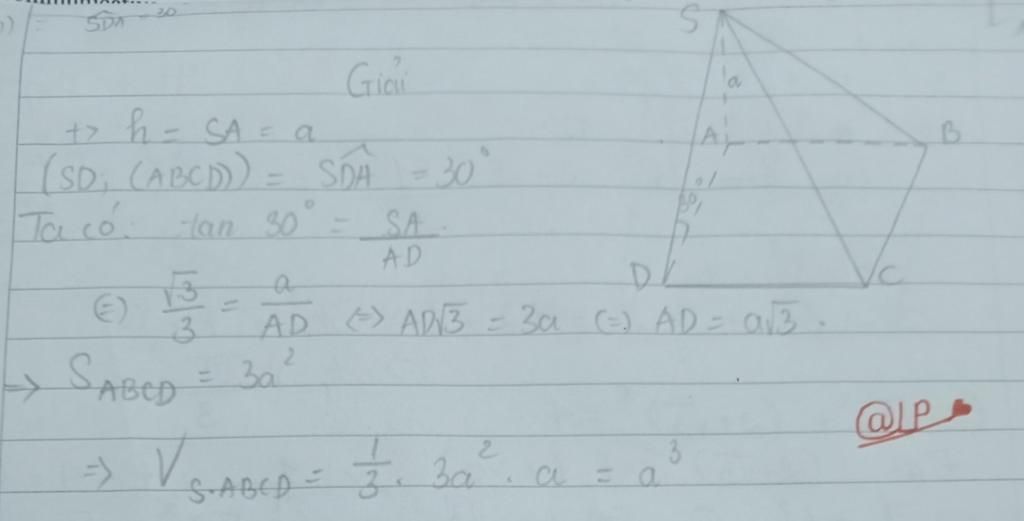 SDA = 30
Giải
+> h = SA = a
(SD; (ABCD)) = SDA^ = 30°
Ta có: tan 30° = SA/AD
(=) √3/3 = a/AD (=> AD√3 = 3a (=) AD = a√3.
=> S_ABCD = 3a²
=> V_S.ABCD = 1/3 . 3a² . a = a³
S
a
A
B
30°
D
C
@LP